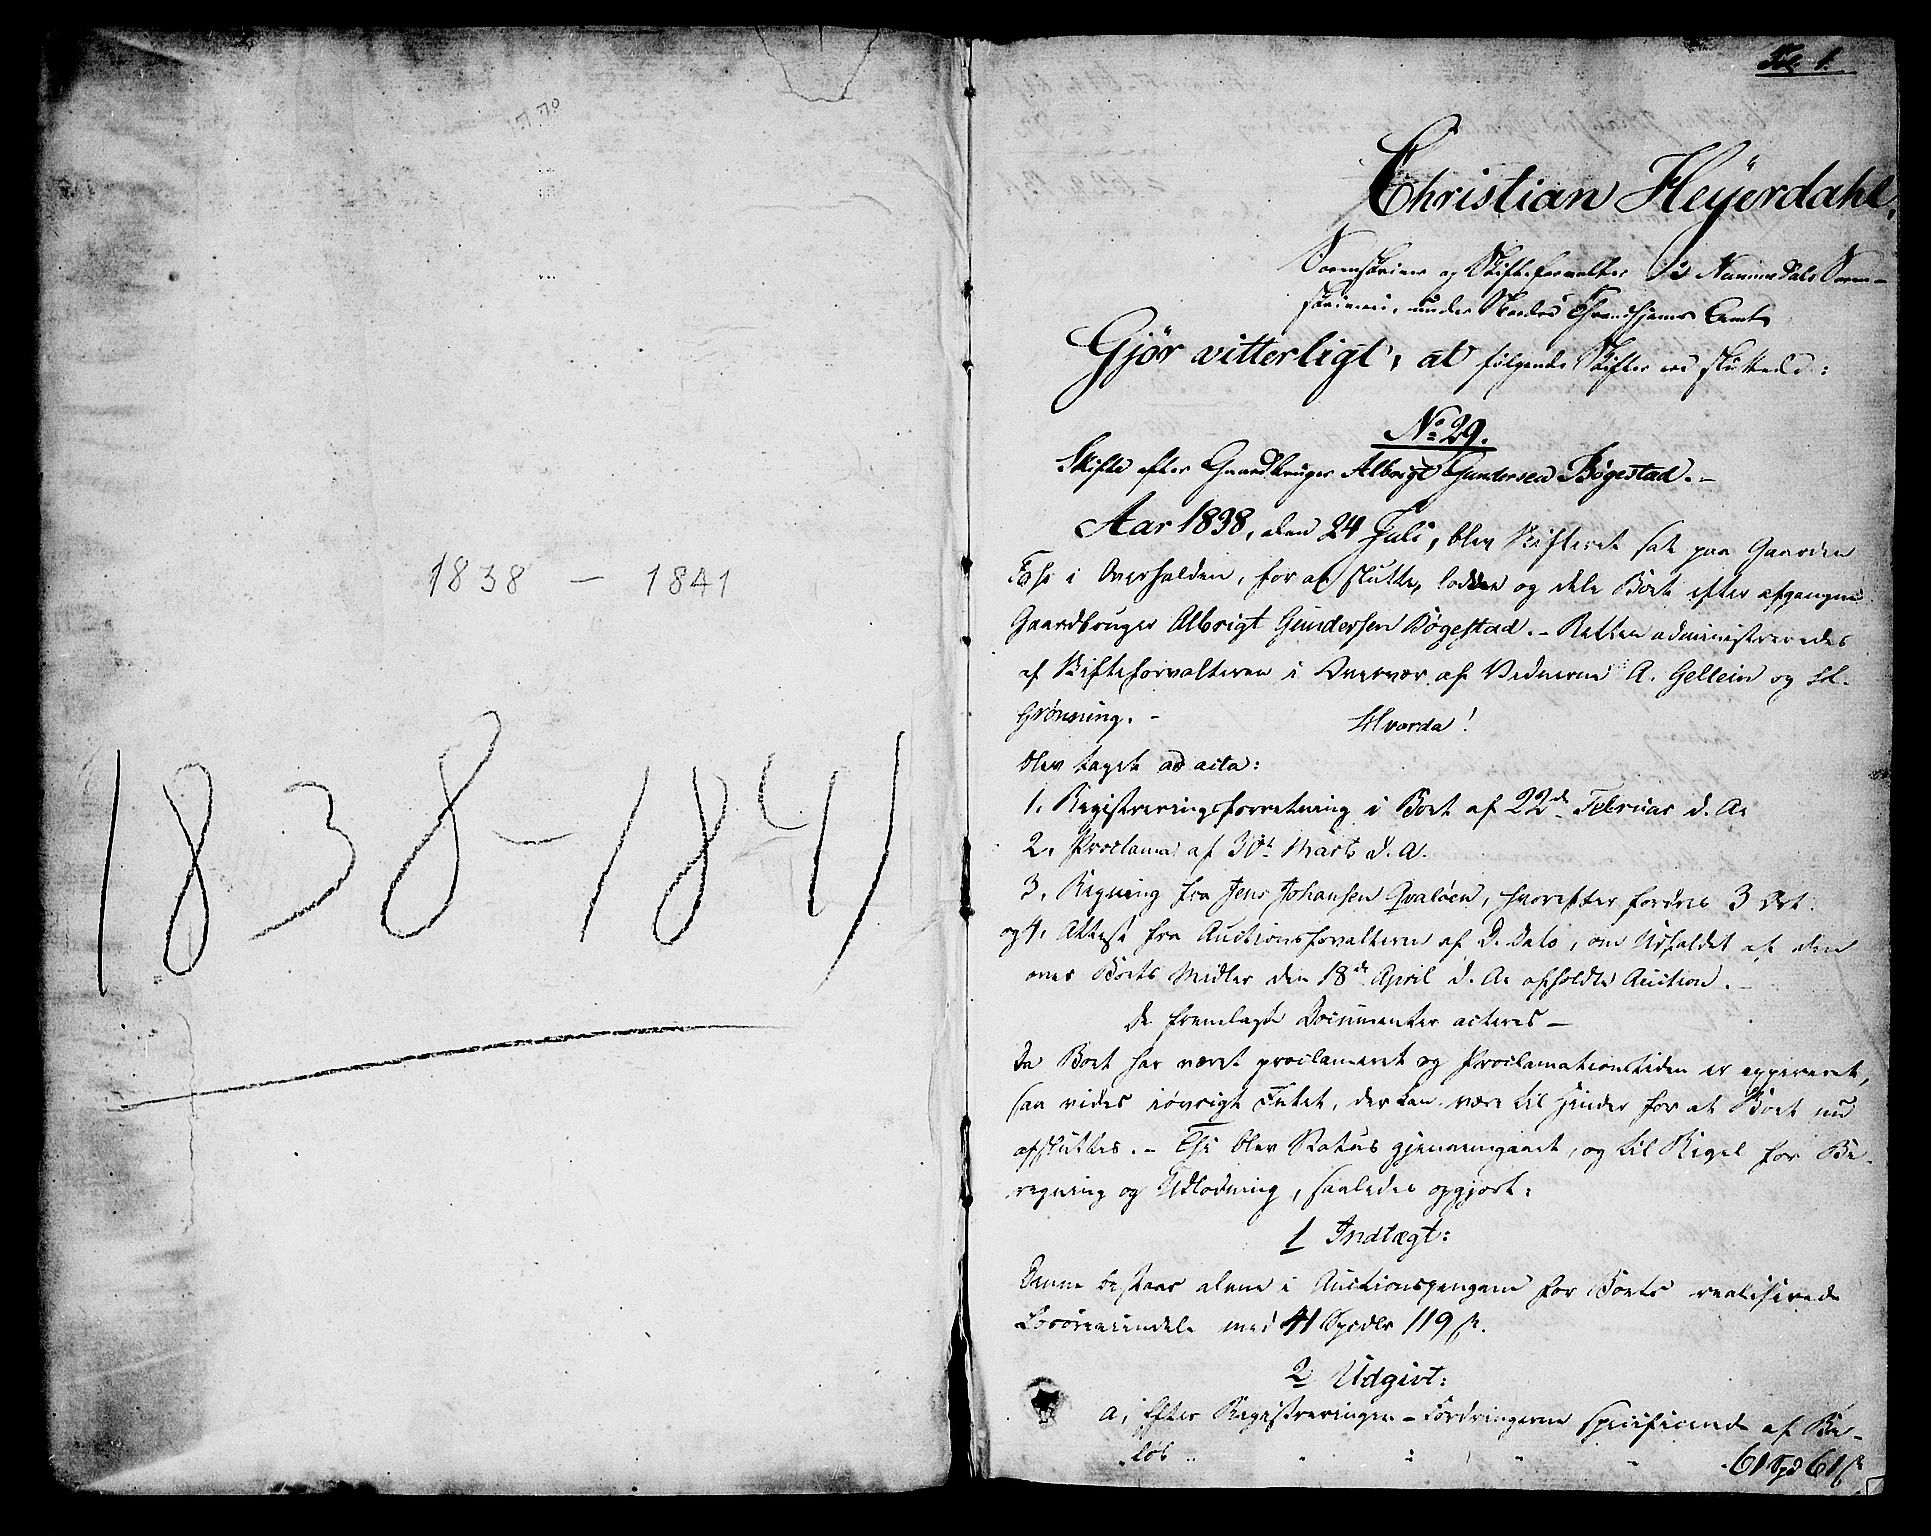 1838 — 1841
1838-1841
Fol. 1.
Christian Heyerdahl,
Sorenskriver og Skifteforvalter i Nummedals Soren-
skriveri, under Nordre Throndhjems Amt,
Gjør vitterligt, at følgende Skifter ere sluttede:
No 29.
Skifte efter Gaardbruger Albrigt Gundersen Bøgestad.-
Aar 1838, den 24 Juli, blev Skifteret sat paa Gaarden
i Overhalden, for at slutte, lodde og dele Boet efter afgangne
Gaardbruger Albrigt Gundersen Bøgestad. - Retten administreredes
af Skifteforvalteren i Overvær af Vidnerne A. Gellein og
Grønning. - Hvorda!
blev taget ad acta:
1, Registreringsforretning i Boet af 22de Februar d. A.
2, Proclama af 30te Marts d. A.
3, Regning fra Jens Johansen Qvaløen, hvorefter fordres 3 Ort.
og 4, Attest fra Auctionsforvalteren af D. Dato, om Udfaldet af den
over Boets Midler den 18de April d. A. afholdte Auction. -
De fremlagte Documenter acteres -
Da Boet har været proclameret og Proclamationstiden er exspireret,
saa vides iøvrigt Intet, der kan være til Hinder for at Boet nu
afsluttes. - Thi blev Status gjennemgaaet, og til Regel for Be-
regning og Udlodning, saaledes opgjort:
1 Indtægt:
Denne bestaaer alene i Auctionspengene for Boets realiserede
Løsøreeiendele med 41 Spdlr 119 s.
2 Udgivt:
a, Efter Registreringen - Fordringerne specificerede af Be-
løb 61 Spd 61 s